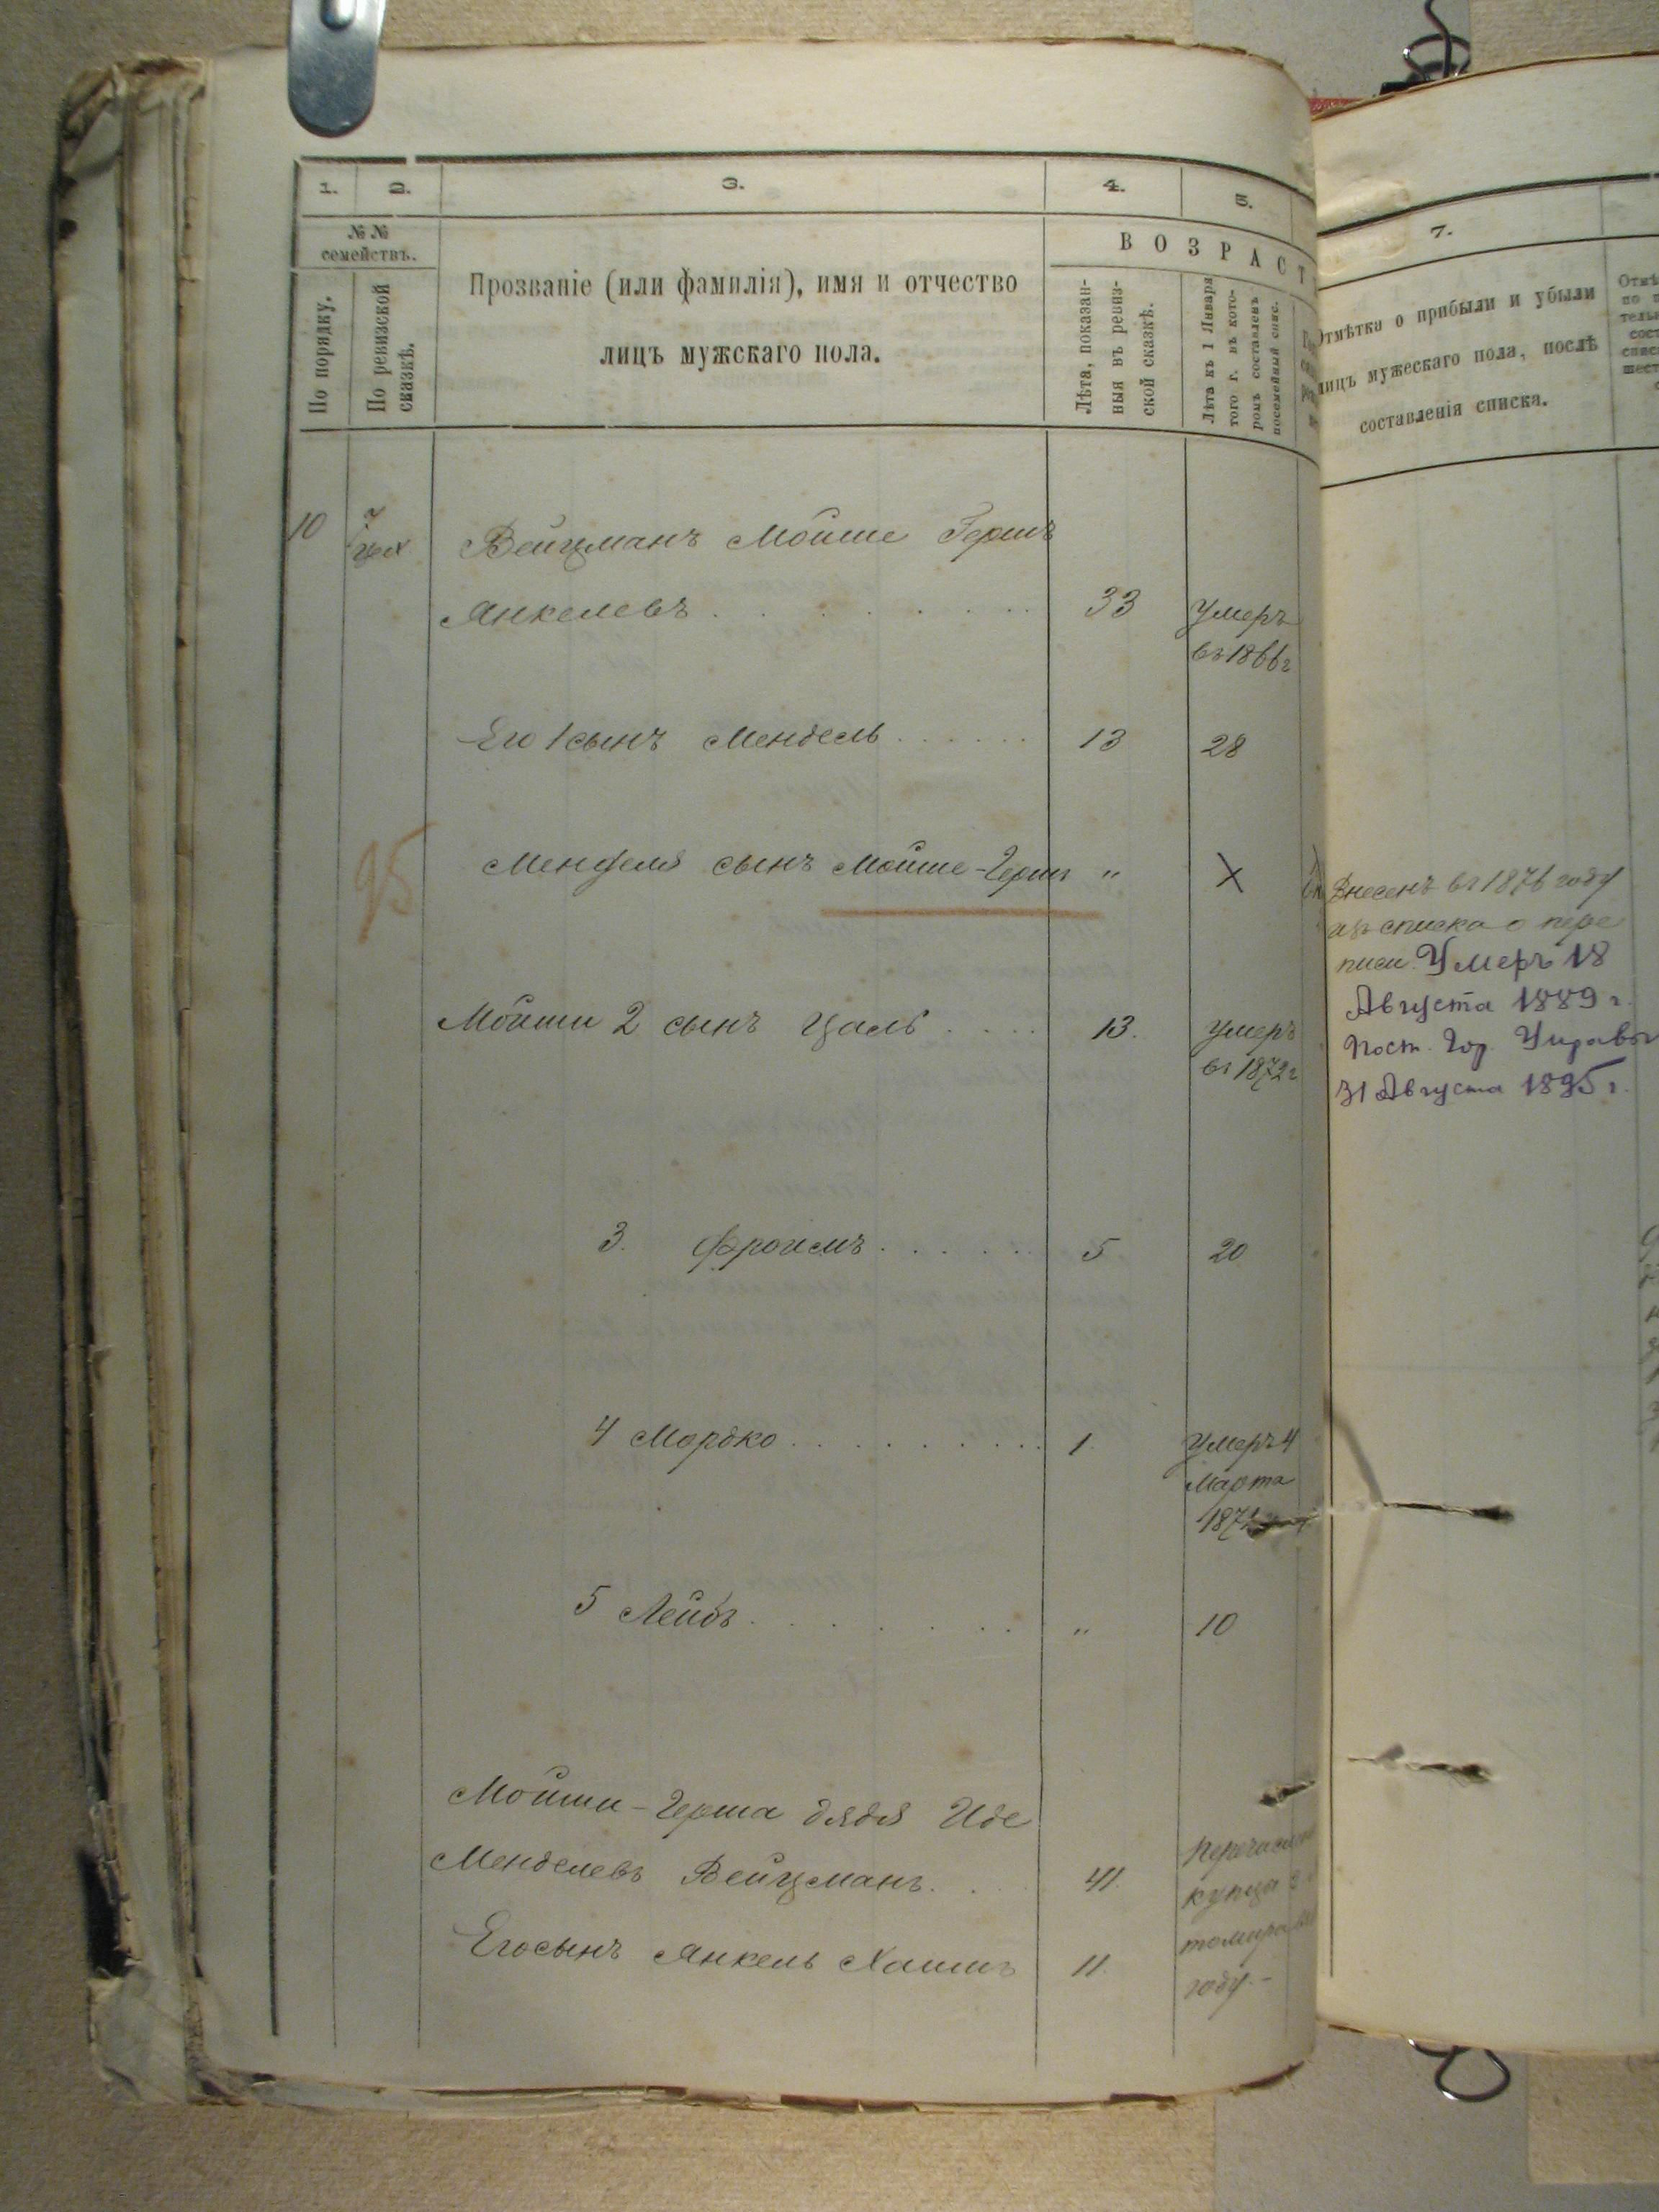 1.
2.
3.
4.
5.
№ №
семействъ.
По порядку.
По ревизской
сказкѣ.
Прозваніе (или фамилія), имя и отчество
лицъ мужскаго пола.
ВОЗРАСТ
Лѣта, показан-
ныя въ ревиз-
ской сказкѣ.
Лѣта къ 1 Января
того г. въ кото-
ромъ составленъ
посемейный спис.
10
7
Вейцманъ Мойше Гершъ
Янкелевъ . . . . . . . 33 Умеръ
въ 1866 г
Его 1 сынъ Мендель . . . . . . 13 28
95
Менделя сынъ Мойше-Герш " X
Мойши 2 сынъ Цаль . . . . 13. умеръ
въ 1872 г
3. Фроимъ . . . . . . 5 20
4 Мордко . . . . . . . . . 1. Умеръ 4
Марта
187
5 Лейбъ . . . . . . . " 10
Мойши-Герша дядя Иде
Менделевъ Вейцманъ. . 41.
Его сынъ Янкель Хаимъ 11.
купца
году. -
7.
Отмѣтки о прибыли и убыли
лицъ мужескаго пола, послѣ
составленія списка.
Внесенъ въ 1876 году
изъ списка о пере
писи. Умеръ 18
Августа 1889 г.
Пост. Гор. Управы
31 Августа 1895 г.